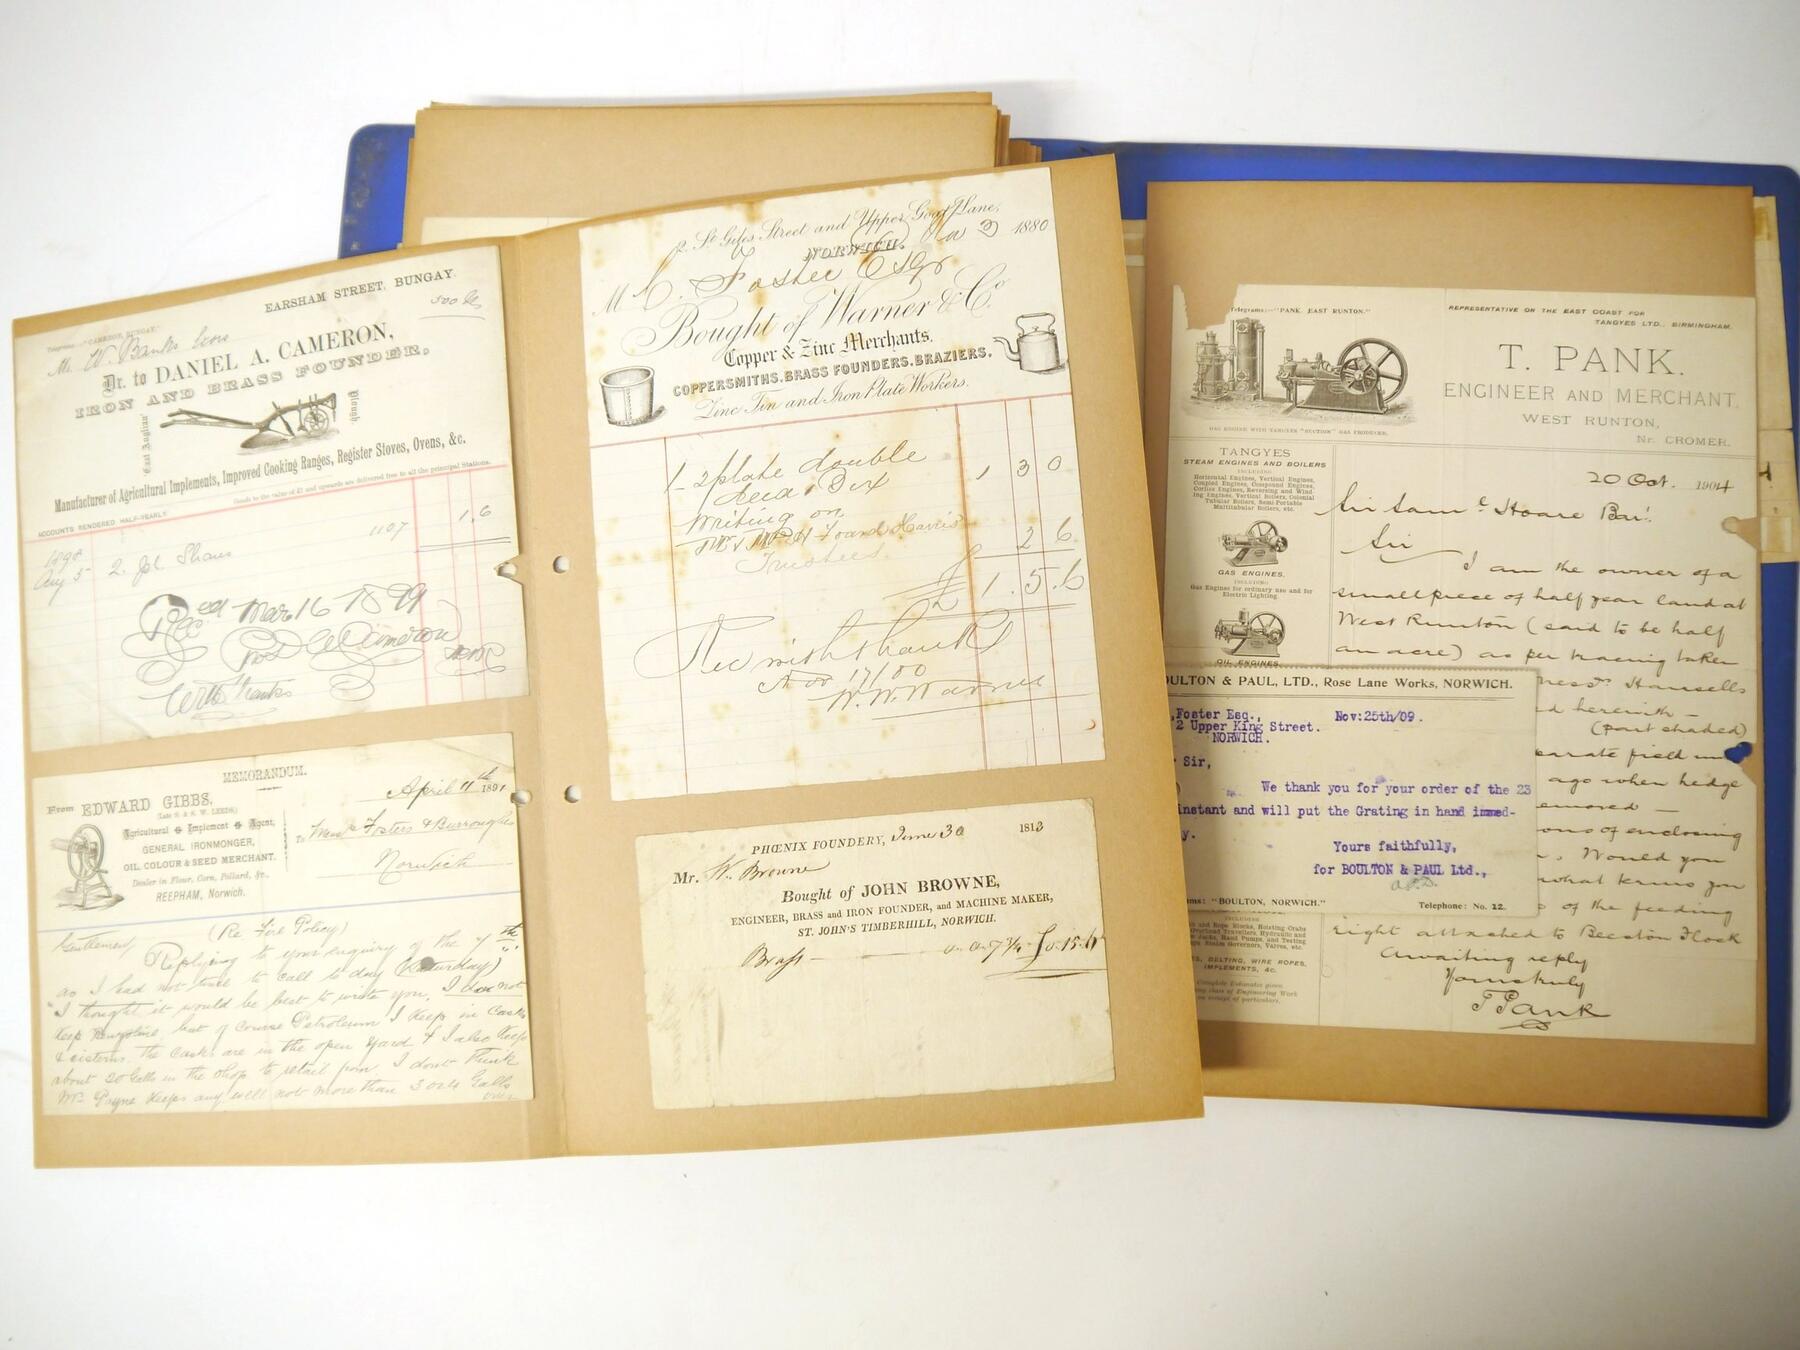 EARSHAM STREET, BUNGAY.
Telegrams:- "CAMERON, BUNGAY."
500
Mr. W. Banks
Dr. to DANIEL A. CAMERON,
IRON AND BRASS FOUNDER,
East Anglian
Plough
Manufacturer of Agricultural Implements, Improved Cooking Ranges, Register Stoves, Ovens, &c.
Goods to the value of £1 and upwards are delivered free to all the principal Stations.
ACCOUNTS RENDERED HALF-YEARLY.
1898
Aug 5 2. Shares 1107 1.6
Recd Mar 16 1899
Cameron
With thanks
MEMORANDUM.
April 11th 1891
From EDWARD GIBBS,
(Late S. & S. W. LEEDS,)
Agricultural Implement Agent,
GENERAL IRONMONGER,
OIL, COLOUR & SEED MERCHANT.
Dealer in Flour, Corn, Pollard, &c.,
REEPHAM, Norwich.
To Messrs Fosters & Burroughes
Norwich
(Re Fire Policy)
Gentlemen,
Replying to your enquiry of the 7th
as I had not time to call to day (Saturday)
I thought it would be best to write you, I do not
keep Benzoline but of course Petroleum I keep in casks
& cisterns. The casks are in the open yard & I also keep
about 20 Galls in the shop to retail from. I dont think
Mr. Payne keeps any well not more than 3 or 4 Galls
over
2, St Giles Street and Upper Goat Lane,
NORWICH. Nov 3 1880
M C. Foster Esqr
Bought of Warner & Co.
Copper & Zinc Merchants,
COPPERSMITHS, BRASS FOUNDERS, BRAZIERS,
Zinc, Tin and Iron Plate Workers.
1- 2 plate double
Deed Box 1 3 0
Writing on
Foard Harris
Trustees 2 6
£1.5.6
Rec with thanks
Nov 17/80
W. W. Warner
PHŒNIX FOUNDERY, June 30 1813
Mr. W. Browne
Bought of JOHN BROWNE,
ENGINEER, BRASS and IRON FOUNDER, and MACHINE MAKER,
ST. JOHN'S TIMBERHILL, NORWICH.
Brass
Telegrams:- "PANK, EAST RUNTON."
REPRESENTATIVE ON THE EAST COAST FOR
TANGYES LTD., BIRMINGHAM.
T. PANK.
ENGINEER AND MERCHANT,
WEST RUNTON,
Nr. CROMER.
GAS ENGINE WITH TANGYES "SUCTION" GAS PRODUCER.
TANGYES
STEAM ENGINES AND BOILERS
INCLUDING
Horizontal Engines, Vertical Engines,
Coupled Engines, Compound Engines,
Corliss Engines, Reversing and Wind-
ing Engines, Vertical Boilers, Colonial
Tubular Boilers, Semi Portable
Multitubular Boilers, etc.
GAS ENGINES,
INCLUDING
Gas Engines for ordinary use and for
Electric Lighting.
OIL ENGINES
20 Oct. 1904
Sir Saml Hoare Bart.
Sir
I am the owner of a
small piece of half year land at
West Runton (said to be half
an acre) as per tracing taken
Messrs Hansells
d herewith -
(part shaded)
separate field un
ago when hedge
removed -
ons of enclosing
Would you
what terms you
of the feeding
right attached to Beeston Flock
Awaiting reply
Yours truly
T Pank
OULTON & PAUL, LTD., Rose Lane Works, NORWICH.
.Foster Esq., Nov:25th/09.
2 Upper King Street.
NORWICH.
Sir,
We thank you for your order of the 23
instant and will put the Grating in hand immed-
y.
Yours faithfully,
for BOULTON & PAUL Ltd.,
ms: "BOULTON, NORWICH." Telephone: No. 12.
INCLUDING
and Rope Blocks, Hoisting Crabs
Overhead Travellers, Hydraulic and
Jacks, Hand Pumps, and Testing
Steam Governors, Valves, etc.
S, BELTING, WIRE ROPES,
IMPLEMENTS, &c.
Complete Estimates given
any class of Engineering Work
on receipt of particulars.